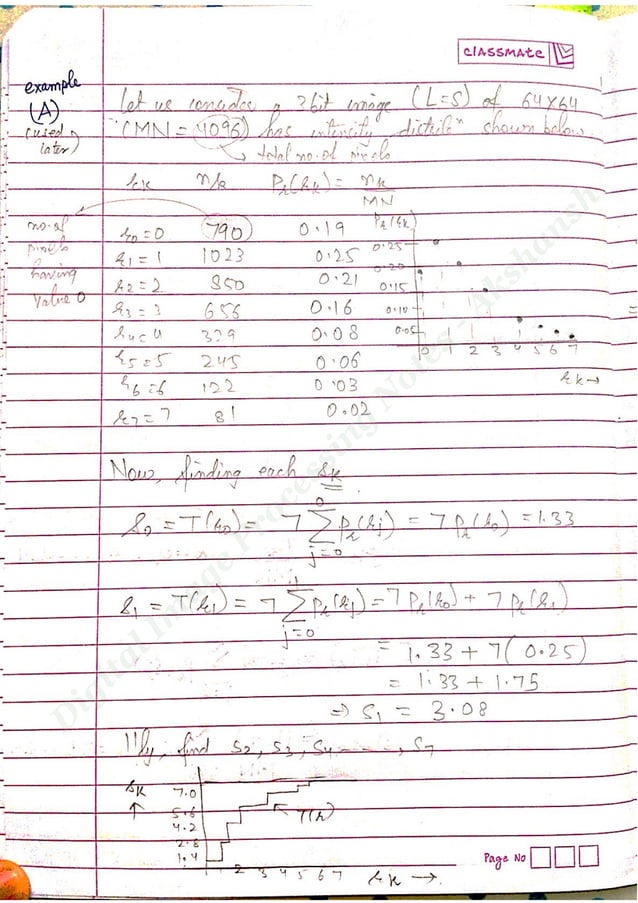 classmate
example
(A)
(used later)
Let us consider a 3bit image (L=8) of 64×64
(MN = 4096) has intensity distribⁿ shown below.
→ total no. of pixels
rk nk Pr(rk) = nk/MN
no. of pixels having value 0
r0 = 0 790 0.19
r1 = 1 1023 0.25
r2 = 2 850 0.21
r3 = 3 656 0.16
r4 = 4 329 0.08
r5 = 5 245 0.06
r6 = 6 122 0.03
r7 = 7 81 0.02
Pr(rk)
0.25
0.20
0.15
0.10
0.05
0 1 2 3 4 5 6 7
rk →
Now, finding each sk
s0 = T(r0) = 7 0∑j=0 Pr(rj) = 7 Pr(r0) = 1.33
s1 = T(r1) = 7 1∑j=0 Pr(rj) = 7 Pr(r0) + 7 Pr(r1)
= 1.33 + 7(0.25)
= 1.33 + 1.75
⇒ s1 = 3.08
111ly, find s2, s3, s4 ----, s7
sk ↑
7.0
5.6
4.2
2.8
1.4
← T(r)
2 3 4 5 6 7 rk →
Page No
Digital Image Processing Notes - Akshansh